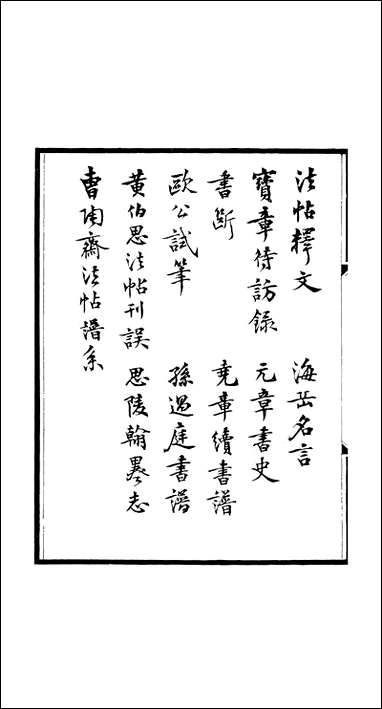 法帖釋文　海岳名言
寳章待訪錄　元章書史
書斷　堯章續書譜
歐公試筆　孫過庭書譜
黃伯思法帖刊誤　思陵翰墨志
曹陶齋法帖譜系